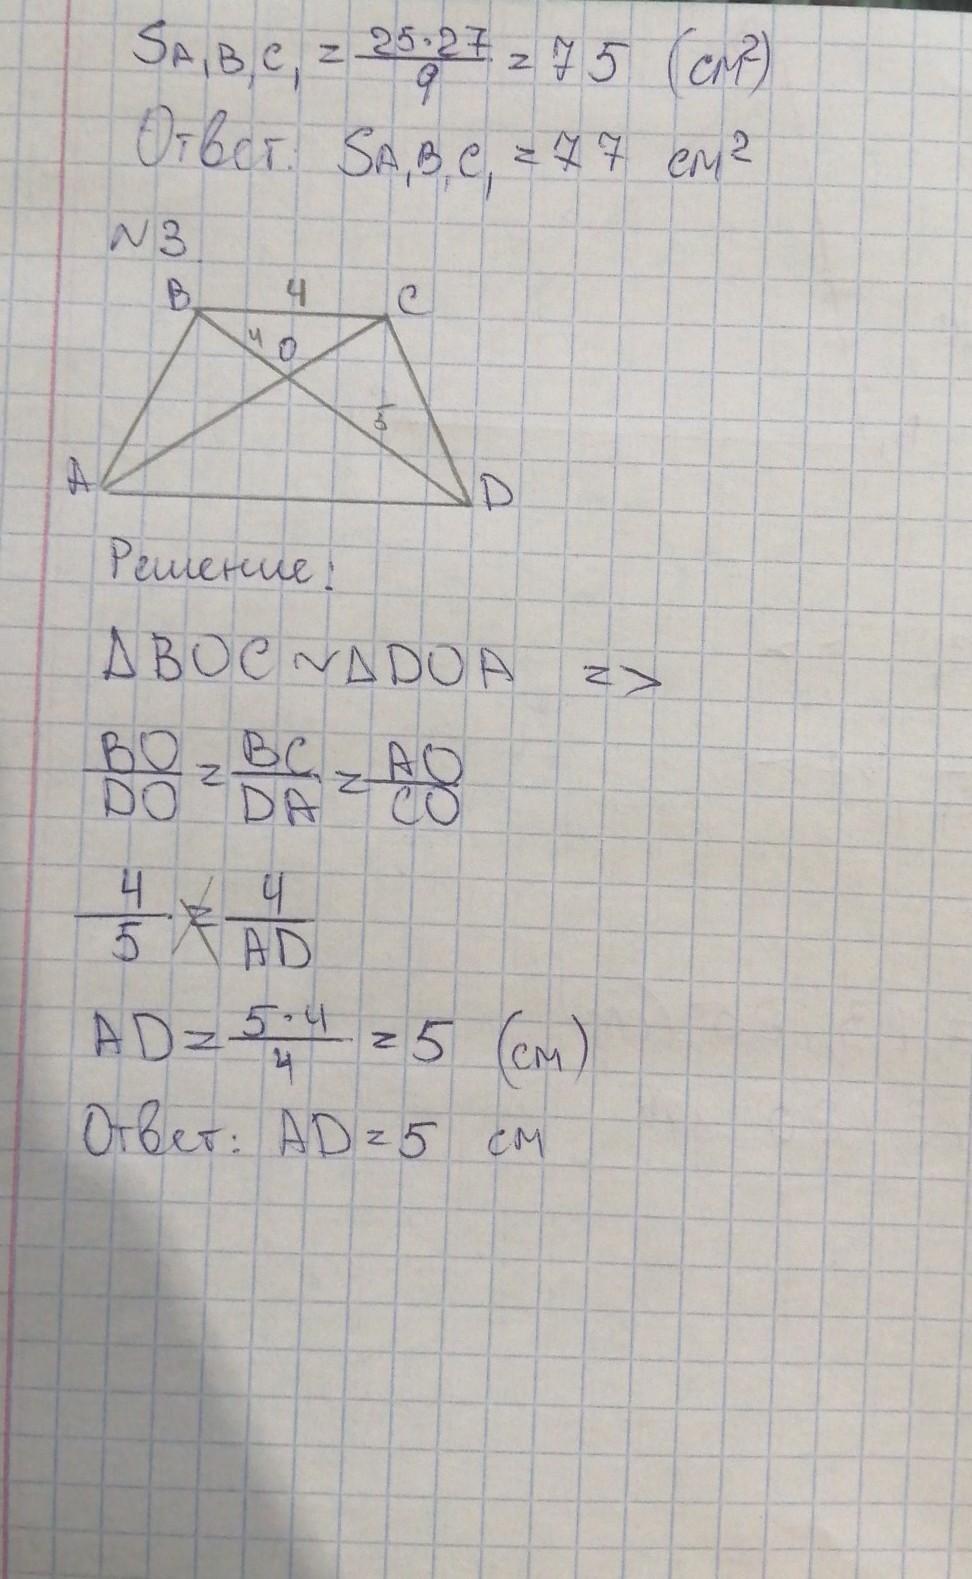 S A₁B₁C₁ = 25·27/9 = 75 (см²)
Ответ: S A₁B₁C₁ = 77 см²
N3
B 4 C
4 O
5
A D
Решение:
ΔBOC ~ ΔDOA =>
BO/DO = BC/DA = AO/CO
4/5 = 4/AD
AD = 5·4/4 = 5 (см)
Ответ: AD = 5 см